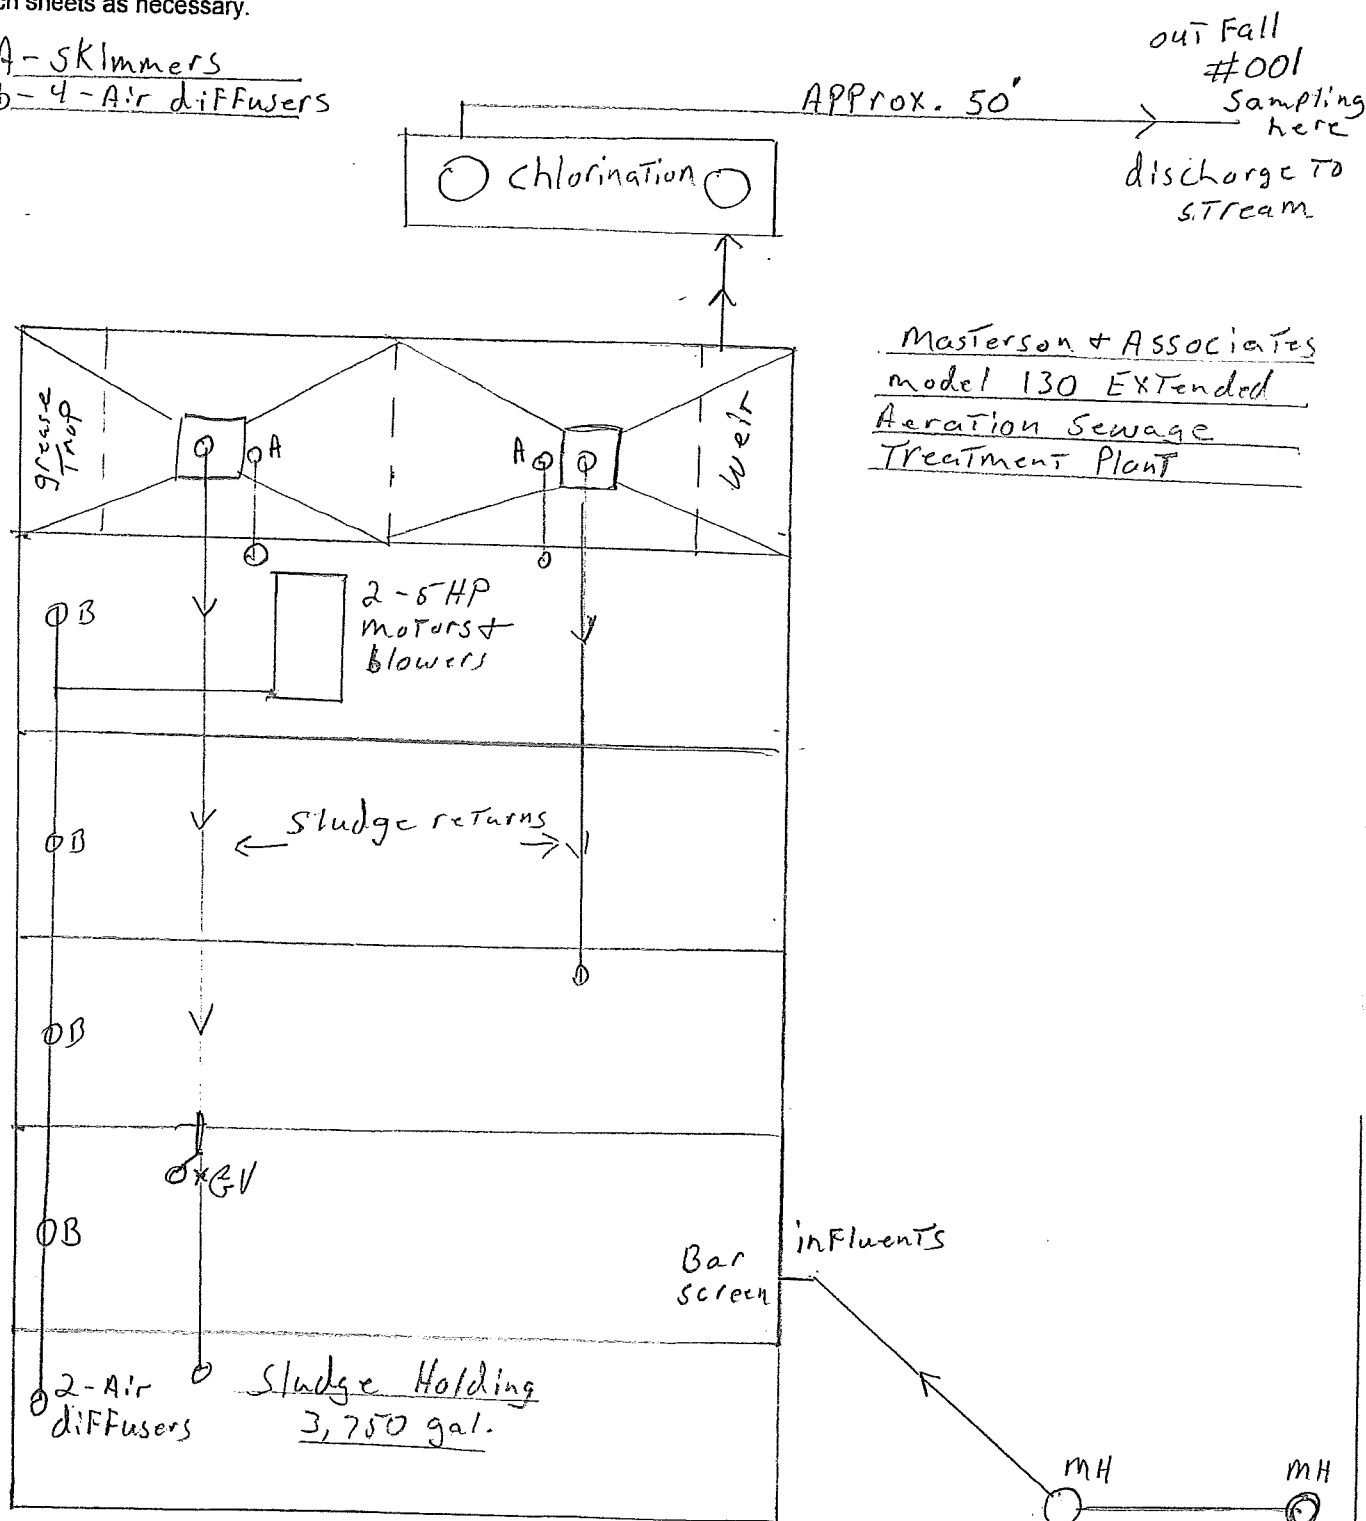 ch sheets as necessary.
A - Skimmers
B - 4 - Air diffusers
outfall
#001
Sampling
here
Approx. 50'
discharge to
stream
Chlorination
Masterson + Associates
model 130 Extended
Aeration Sewage
Treatment Plant
grease
Trap
A
A
Weir
B
2 - 5 HP
motors +
blowers
B
Sludge returns
B
GV
B
influents
Bar
screen
2 - Air
diffusers
Sludge Holding
3,750 gal.
MH
MH